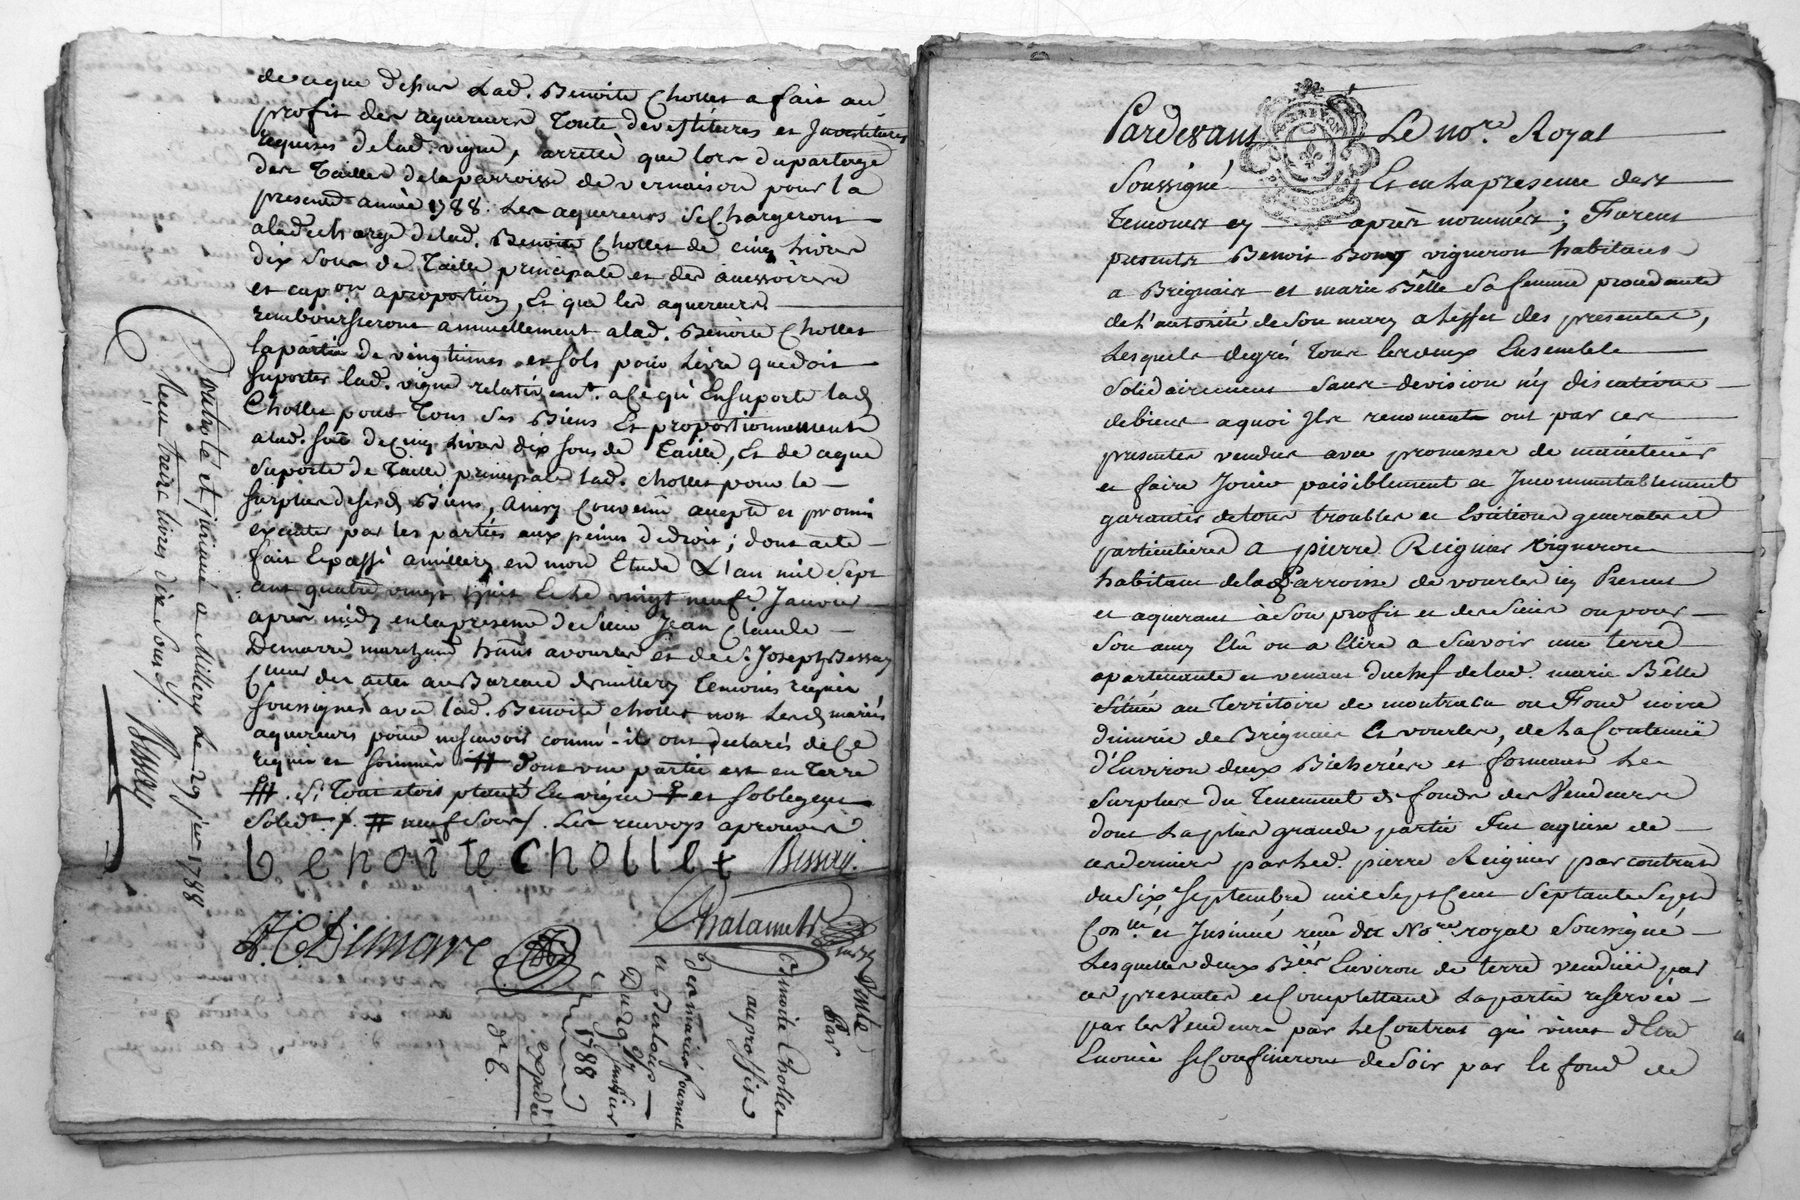 de ce que dessus Lad. Benoite Chollet a fait au
profit des aquereurs Toute devestitures et Jnvestitures
requises de lad. vigne, arretté que lors du partage
des Tailles de la parroisse de vernaison pour la
presente année 1788. Les aquereurs se Chargeront
a la decharge de lad. Benoite Chollet de cinq Livres
dix sous de Taille principale et des accessoires
et cap.on a proportion, Et que les aquereurs
rembourseront annuellement a lad. Benoite Chollet
la partie de vingtiemes et sols pour Livre que doit
suporter lad. vigne relativem.t a Ce qu'En suporte lad.
Chollet pour Tous ses Biens Et proportionnement
a lad. de Cinq Livres dix sous de Taille, Et de ce que
suporte de Taille principale lad. chollet pour le
surplus de ses d. Biens, Ainsy Convenu accepté et promis
éxecuter par les parties aux peines de droit; dont acte
fait Et passé a millery en mon Etude L'an mil sept
cent quatre vingt huit Et Le vingt neuf Janvier
après midy en la presence de Sieur Jean Claude
Demarre marchand a vourles et de S.r Joseph Bessay
des actes au Bureau de millery Temoins requis
soussignés avec lad. Benoite chollet non Les d. mariés
aquereurs pour ne scavoir comme ils ont declarés de Ce
requis et sommés # dont une partie est en Terre
#. Si Tout etoit planté En vigne et s'oblegent
Solid.t # neuf sous. Les renvoys aprouvés
benoite chollet Bessay.
J. C. Demare Chatanets
Controlé et jnsinué a Millery Le 29 j.er 1788
Reçu treize livres dix sous
Bessay
Vente
Par
Benoite Chollet
au proffit
des mariés fournel
et Barloup
Du 29 Janvier
1788
expdiée
Pardevant Le no.re Royal
Soussigné Et en la presence des
temoins cy après nommés; Furent
presents Benoit Bony vigneron habitans
a Brignais et marie Bêlle sa femme procedante
de l'autorité de son mary a l'effet des presentes,
Lesquels de gré Tous les deux Ensemble
Solidairement sans division n'y discution
de biens a quoi Jls renoncent ont par ces
presentes vendus avec promesses de maintenir
et faire Jouir paisiblement et Jncommutablement
garantir de tous troubles et Evictions generales et
particulieres a pierre Reignier vigneron
habitant de la Parroisse de vourles icy Present
et aquerant à son profit et des siens ou pour
son amy Elû ou a Elire a Scavoir une terre
apartenante et venant du chef de lad. marie Bêlle
située au Territoire de montracu ou Fond noire
dimerie de Brignais Et vourles, de la Contenue
d'Environ deux Bicherées et formant Le
Surplus du Tenement de fonds des Vendeurs
dont La plus grande partie Fut aquise de
ces derniers par Led. pierre Reignier par contrat
du Six Septembre mil Sept Cent Septante Sept
Con.lé et Jnsinué reçu du No.re royal Soussigné
Lesquelles deux B.ées Environ de terre vendües par
ces presentes et Complettant La partie reservée
par les Vendeurs par Le Contrat qui vient d'Etre
Enoncé se Confineront de Soir par le fond de